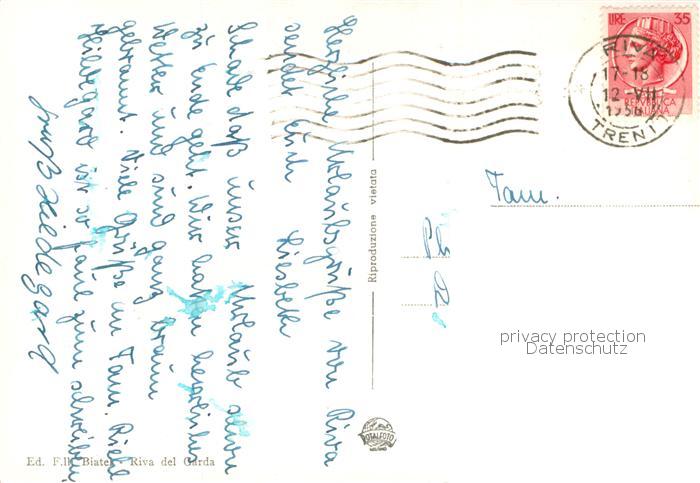 Herzliche Urlaubsgrüße von Riva
sendet Euch Liesbeth
Schade daß unser Urlaub schon
zu Ende geht. Wir haben herrliches
Wetter und sind ganz braun
gebrannt. Viele Grüße an Fam.
Hiedegard ist zu faul zum schreiben.
Gruß Hiedegard
Ed. F.lli Biatel - Riva del Garda
Riproduzione vietata
LIRE 35
REPVBBLICA
ITALIANA
RIVA
17-18
12 VII
1956
TRENTO
Fam.
privacy protection
Datenschutz
ROTALFOTO
MILANO